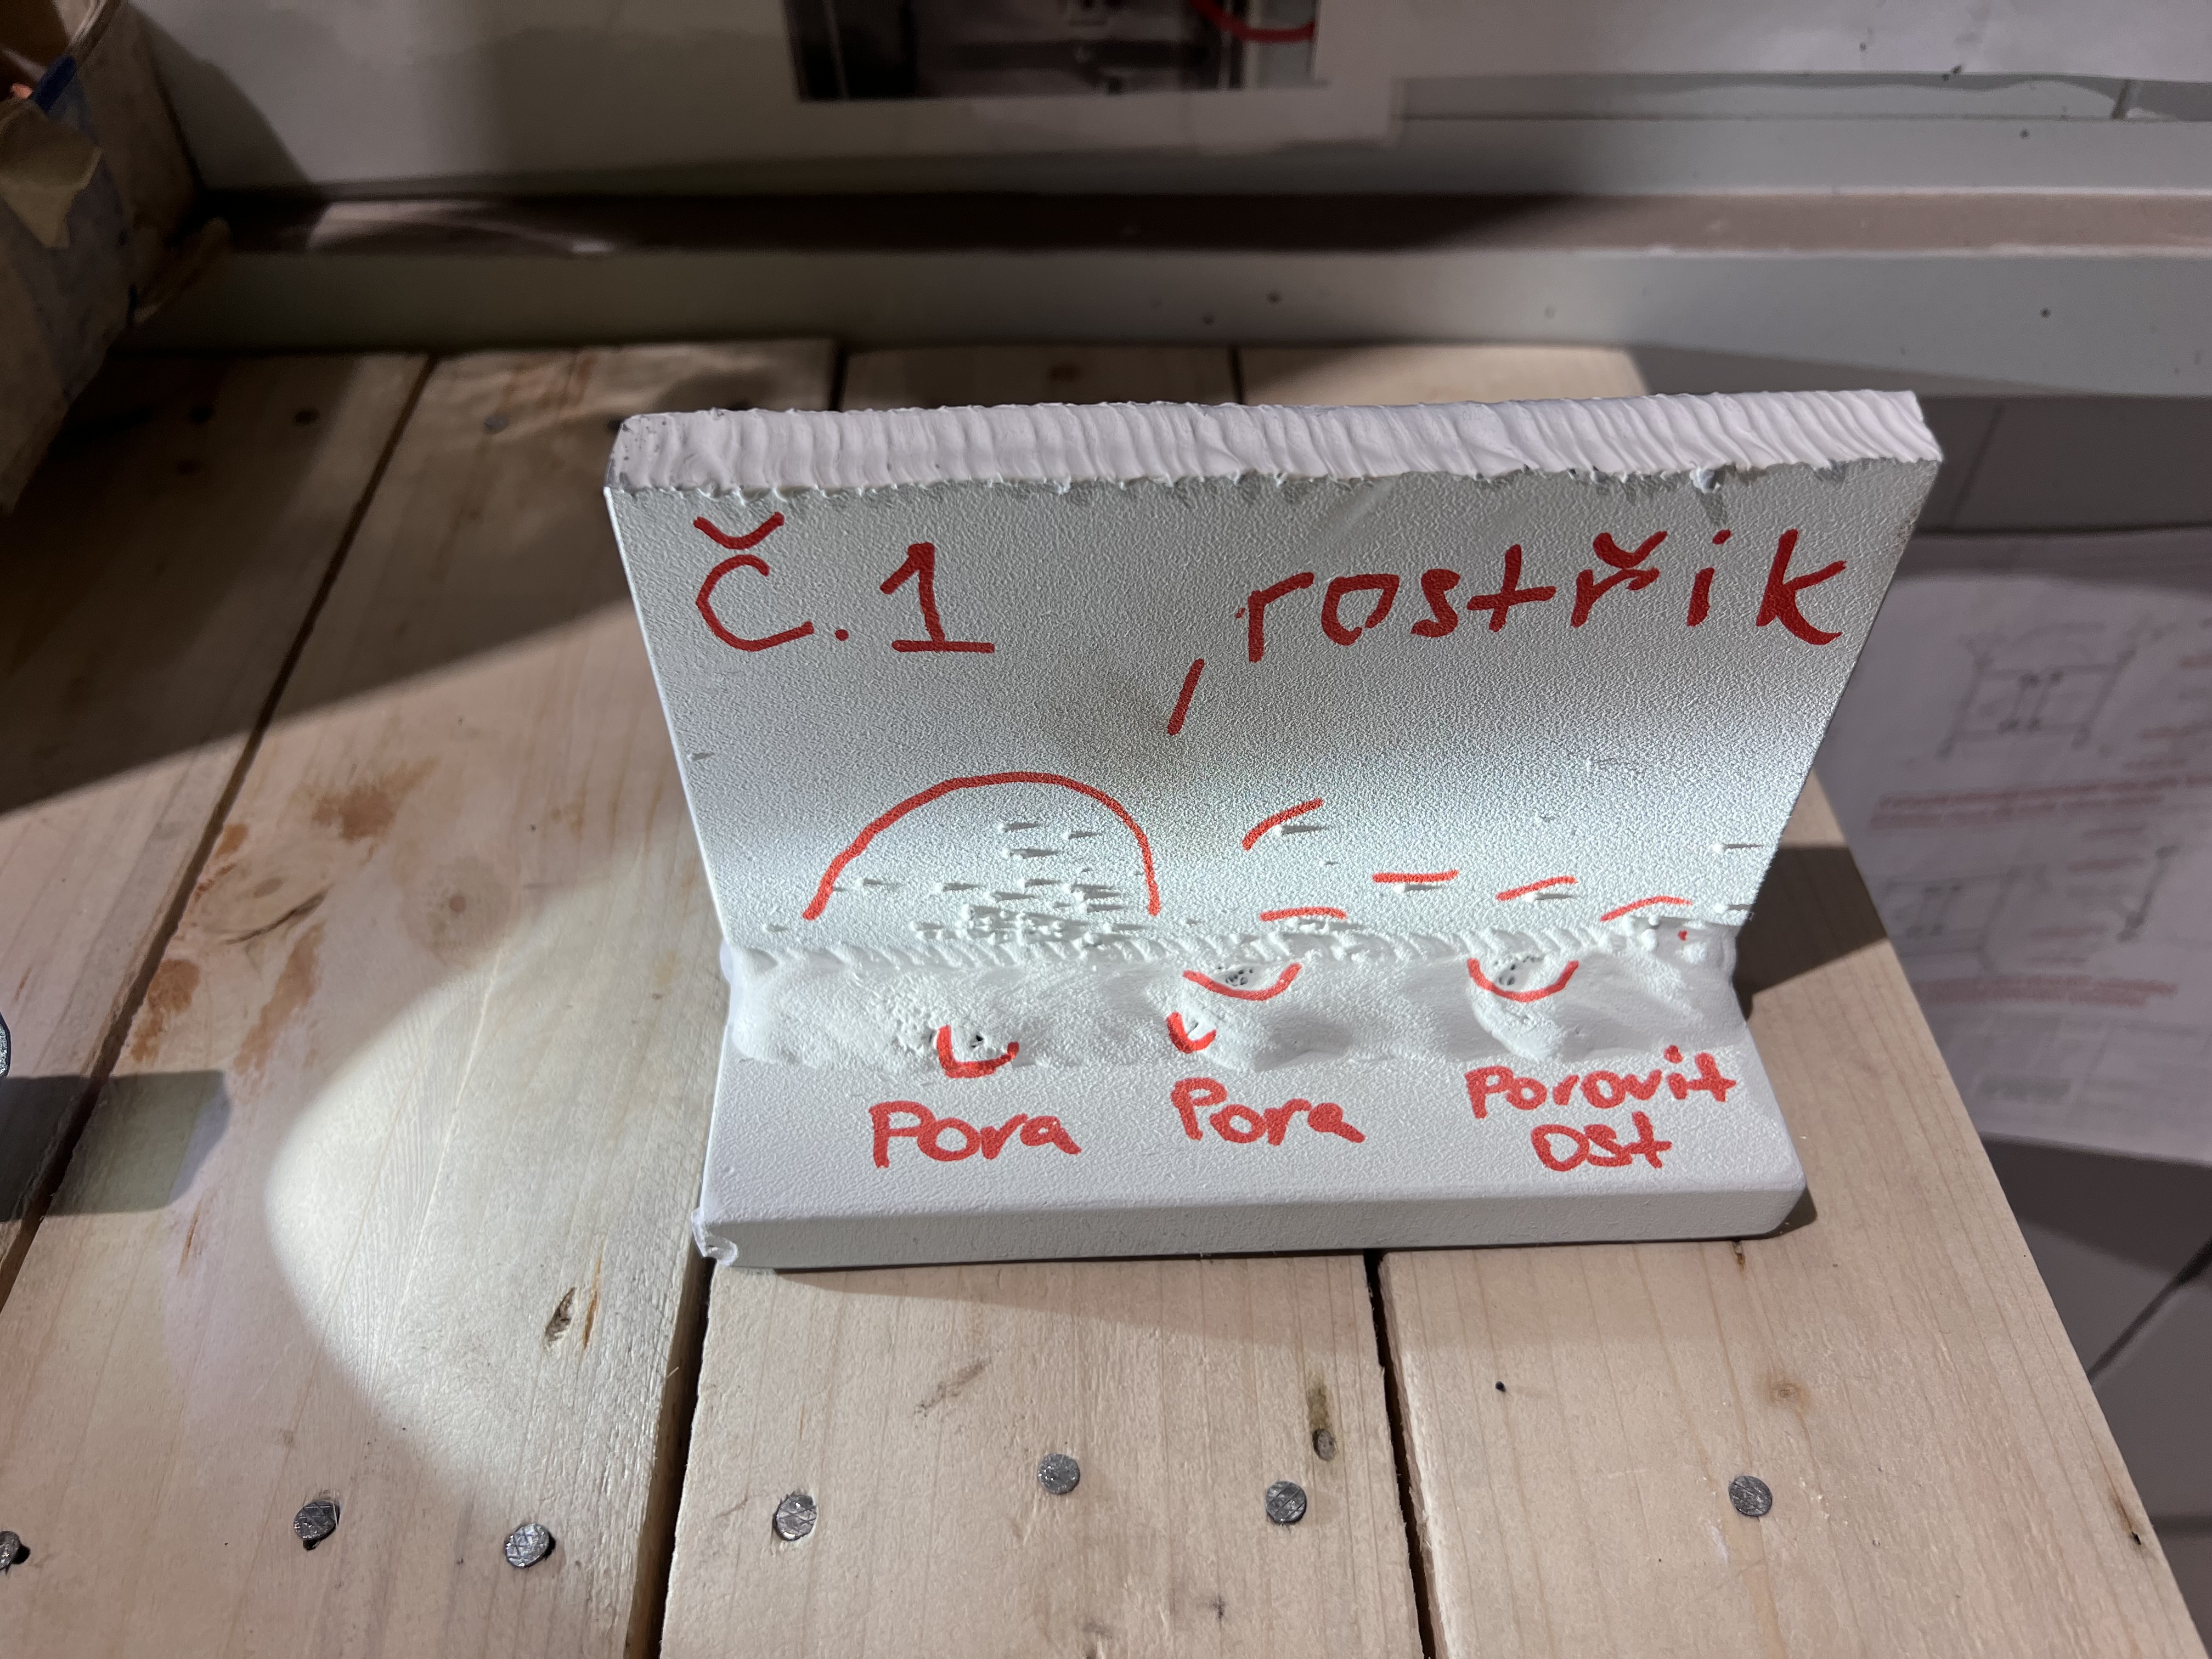 Č.1 rostřik
Pora Pora Porovit
ost